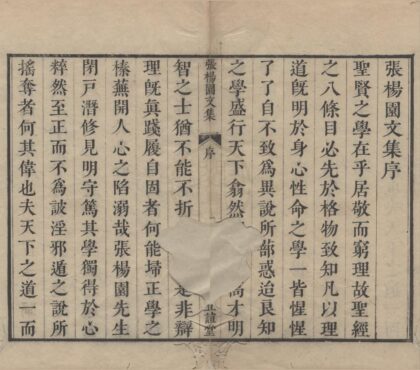 張楊園文集序
聖賢之學在乎居敬而窮理故聖經
之八條目必先於格物致知凡以理
道旣明於身心性命之學一皆惺惺
了了自不致爲異說所蔀惑迨良知
之學盛行天下翕然高才明
張楊園文集 序 正誼堂
智之士猶不能不折是非辯
理旣眞踐履自固者何能埽正學之
榛蕪開人心之陷溺哉張楊園先生
閉戶潛修見明守篤其學獨得於心
粹然至正而不爲詖淫邪遁之說所
搖奪者何其偉也夫天下之道一而